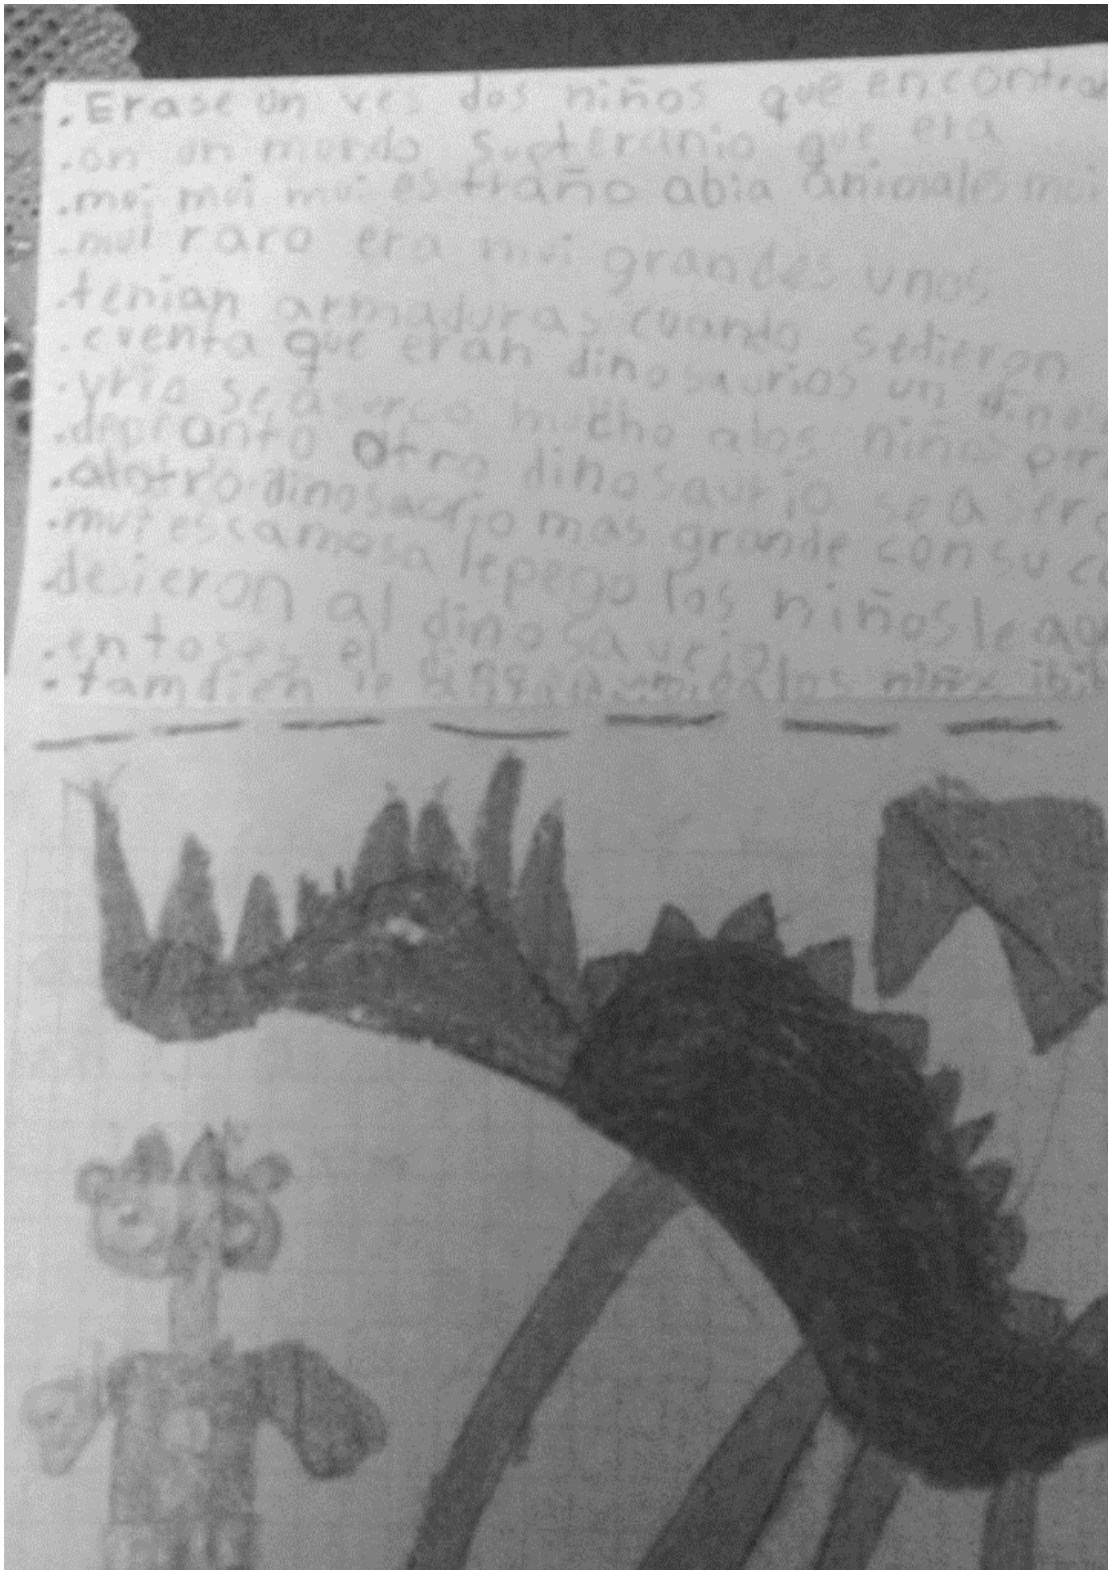 .Erase un ves dos niños que encontrar
.on un mundo supteranio que era
.mui mui mui estraño abia animales moi
.mui raro era mui grandes unos
.tenian armaduras cuando sedieron
.cuenta que eran dinosaurios un dinos
.urio seaserco mucho alos niños pero
.depronto otro dinosaurio seaserc
.alotro dinosaurio mas grande con su co
.mui escamosa lepego los niños le ag
.desieron al dinosaurio
.entoses el
.tamdien le alos niños ibi